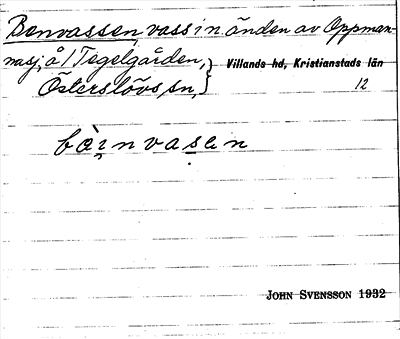 Benvassen, vass i n. änden av Oppman-
nasj, å / Tegelgården,
Österslövs sn,
Villands hd, Kristianstads län
12
bài̯nvasen
JOHN SVENSSON 1932